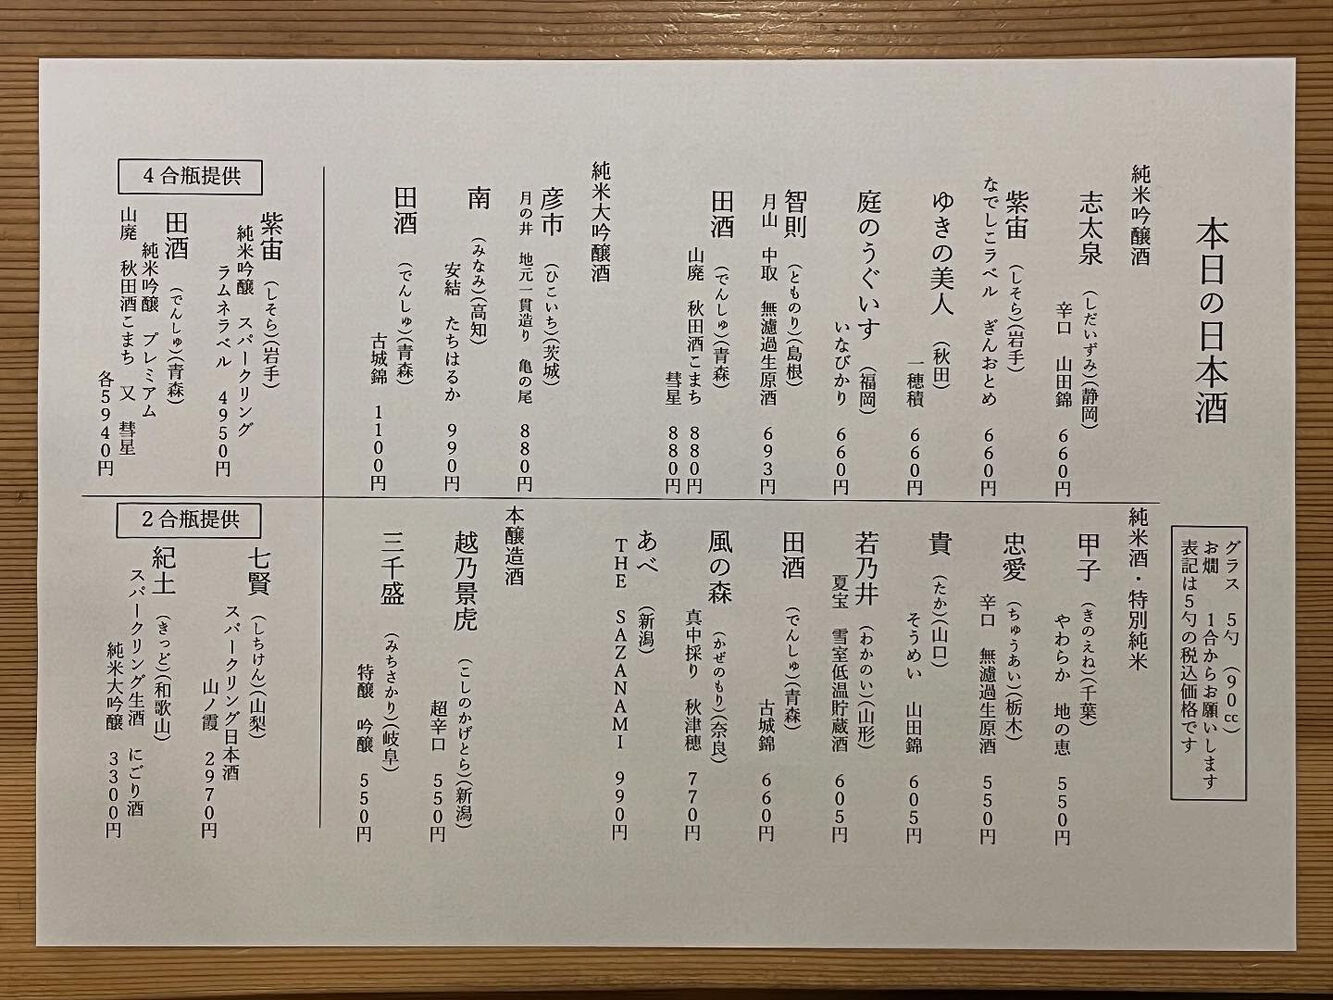 本日の日本酒
グラス　5勺　(90㏄)
お燗　1合からお願いします
表記は5勺の税込価格です
純米吟醸酒
志太泉　(しだいずみ)(静岡)
辛口　山田錦　660円
紫宙　(しそら)(岩手)
なでしこラベル　ぎんおとめ　660円
ゆきの美人　(秋田)
一穂積　660円
庭のうぐいす　(福岡)
いなびかり　660円
智則　(とものり)(島根)
月山　中取　無濾過生原酒　693円
田酒　(でんしゅ)(青森)
山廃　秋田酒こまち　880円
彗星　880円
純米大吟醸酒
彦市　(ひこいち)(茨城)
月の井　地元一貫造り　亀の尾　880円
南　(みなみ)(高知)
安結　たちはるか　990円
田酒　(でんしゅ)(青森)
古城錦　1100円
純米酒・特別純米
甲子　(きのえね)(千葉)
やわらか　地の恵　550円
忠愛　(ちゅうあい)(栃木)
辛口　無濾過生原酒　550円
貴　(たか)(山口)
そうめい　山田錦　605円
若乃井　(わかのい)(山形)
夏宝　雪室低温貯蔵酒　605円
田酒　(でんしゅ)(青森)
古城錦　660円
風の森　(かぜのもり)(奈良)
真中採り　秋津穂　770円
あべ　(新潟)
THE　SAZANAMI　990円
本醸造酒
越乃景虎　(こしのかげとら)(新潟)
超辛口　550円
三千盛　(みちさかり)(岐阜)
特醸　吟醸　550円
4合瓶提供
紫宙　(しそら)(岩手)
純米吟醸　スパークリング
ラムネラベル　4950円
田酒　(でんしゅ)(青森)
純米吟醸　プレミアム
山廃　秋田酒こまち　又　彗星
各5940円
2合瓶提供
七賢　(しちけん)(山梨)
スパークリング日本酒
山ノ霞　2970円
紀土　(きっど)(和歌山)
スパークリング生酒　にごり酒
純米大吟醸　3300円